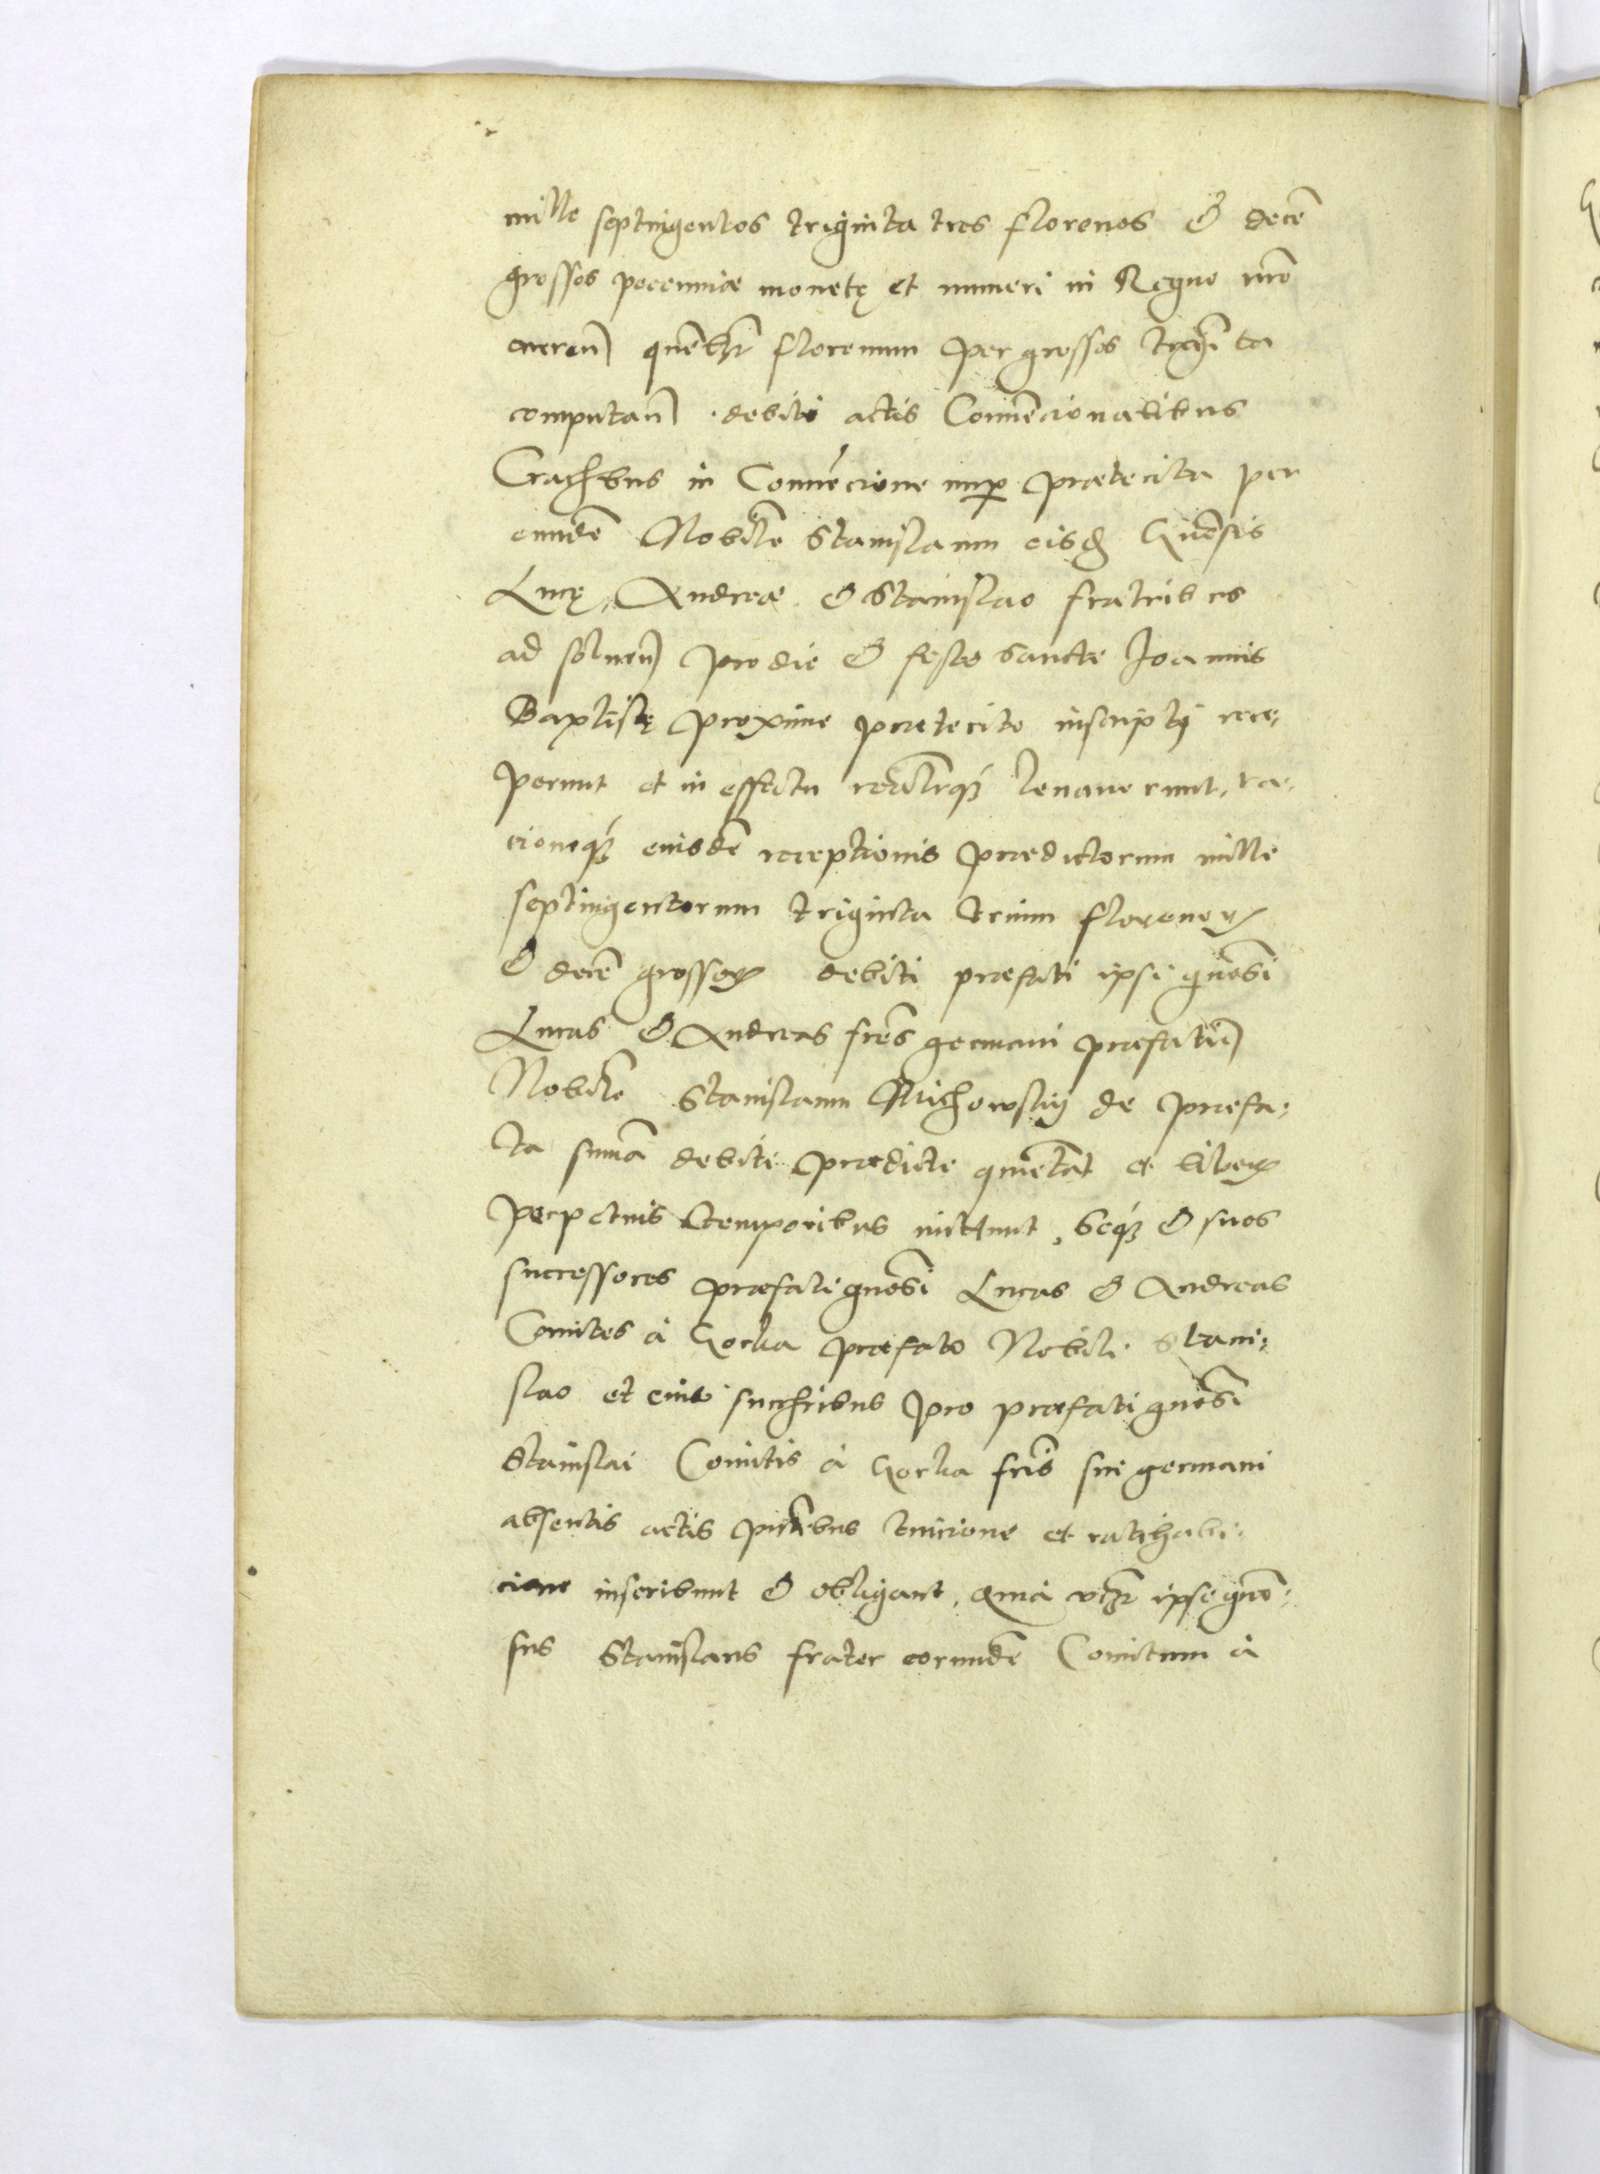 mille septingentos triginta tres florenos & decē
grossos pecuniae monetę et numeri in Regno nrō
curreñ quēlibt florenum per grossos trigīta
computañ debiti actis Conuēcionalibus
in Conuēcione nup praeterita per
eundē Nobilē Stanislaum eisd Gnōsis
Lucę, Andreae & Stanislao fratribus
ad soluenđ pro die & festo Sancti Joannis
Baptistę proxime praeterito inscripti rece,
perunt et in effectu realiterq́ʒ leuauerunt, ra,
cioneq́ʒ eiusdē receptionis praedictorum mille
septingentorum triginta trium florenoꝝ
& decē grossoꝝ debiti praefati ipsi gnōsi
Lucas & Andreas frēs germani praefatū
Nobilē Stanislaum de praefa,
ta sumā debiti praedicti quietāt et liberū
perpetuis temporibus mittunt, Seq́ʒ & suos
successores praefati gnōsi Lucas & Andreas
Comites à Gorka praefato Nobili Stani,
slao et eius succribus pro praefati gnōsi
Stanislai Comitis à Gorka frīs sui germani
absentis actis pn̄tibus euicione et ratihabi,
cione inscribunt & obligant, quia ipse gnō,
sus Stanislaus frater eorundē Comitum à